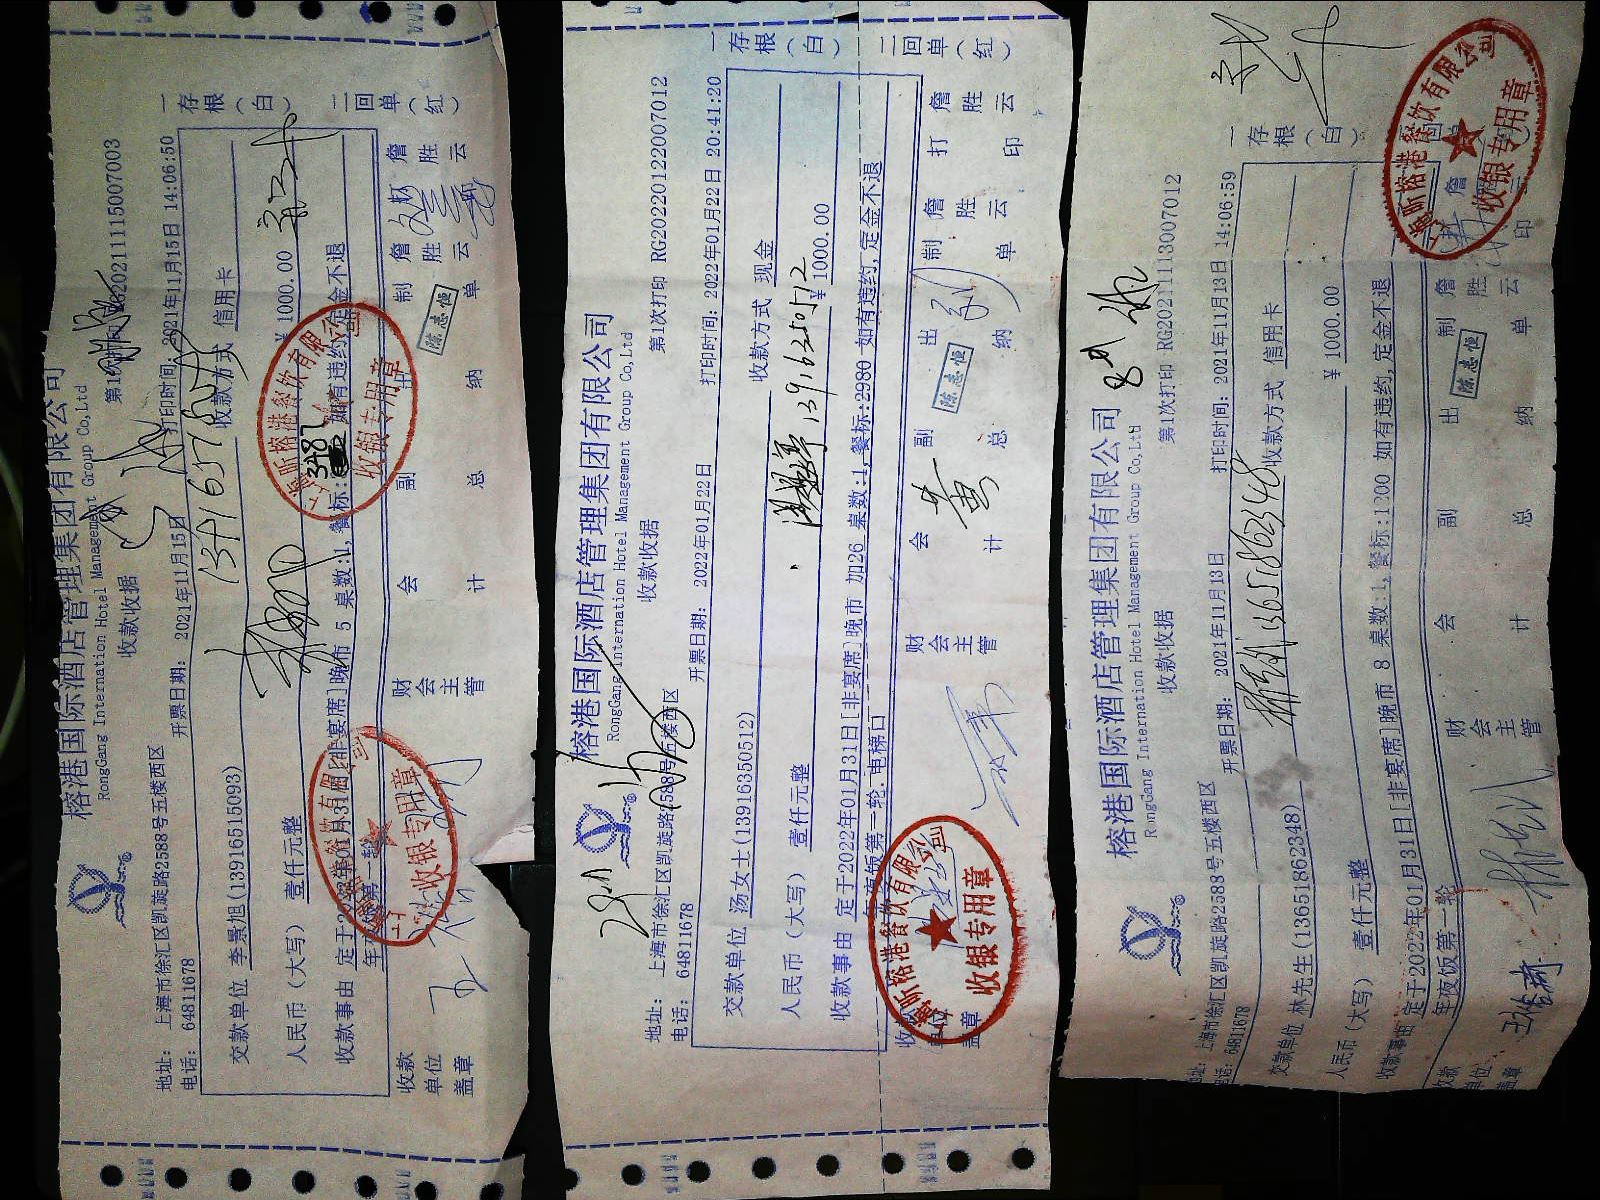 榕港国际酒店管理集团有限公司
RongGang International Hotel Management Group Co,Ltd
收款收据
地址: 上海市徐汇区凯旋路2588号五楼西区
电话: 64811678
开票日期: 2021年11月15日
打印时间: 2021年11月15日 14:06:50
交款单位 李景旭(13916515093)
收款方式 信用卡
人民币(大写) 壹仟元整
¥ 1000.00
年夜饭第一轮
收款单位盖章
财会主管
会计
副总
出纳
制单 詹胜云
詹胜云
陈志恒
收银专用章
收银专用章
一存根(白)
二回单(红)
榕港国际酒店管理集团有限公司
RongGang International Hotel Management Group Co,Ltd
收款收据
第1次打印 RG20220122007012
地址: 上海市徐汇区凯旋路2588号五楼西区
电话: 64811678
开票日期: 2022年01月22日
打印时间: 2022年01月22日 20:41:20
交款单位 汤女士(13916350512)
收款方式 现金
13916350512
人民币(大写) 壹仟元整
¥ 1000.00
收款事由 定于2022年01月31日[非宴席]晚市 加26 桌数:1,餐标:2980 如有违约,定金不退
年夜饭第一轮,电梯口
收款单位盖章
财会主管
会计
副总
出纳
制单 詹胜云
打印 詹胜云
陈志恒
收银专用章
一存根(白)
二回单(红)
榕港国际酒店管理集团有限公司
RongGang International Hotel Management Group Co,Ltd
收款收据
第1次打印 RG20211113007012
地址: 上海市徐汇区凯旋路2588号五楼西区
电话: 64811678
开票日期: 2021年11月13日
打印时间: 2021年11月13日 14:06:59
交款单位 林先生(13651862348)
收款方式 信用卡
13651862348
人民币(大写) 壹仟元整
¥ 1000.00
收款事由 定于2022年01月31日[非宴席]晚市 8 桌数:1,餐标:1200 如有违约,定金不退
年夜饭第一轮
收款单位盖章
财会主管
会计
副总
出纳
制单 詹胜云
陈志恒
收银专用章
一存根(白)